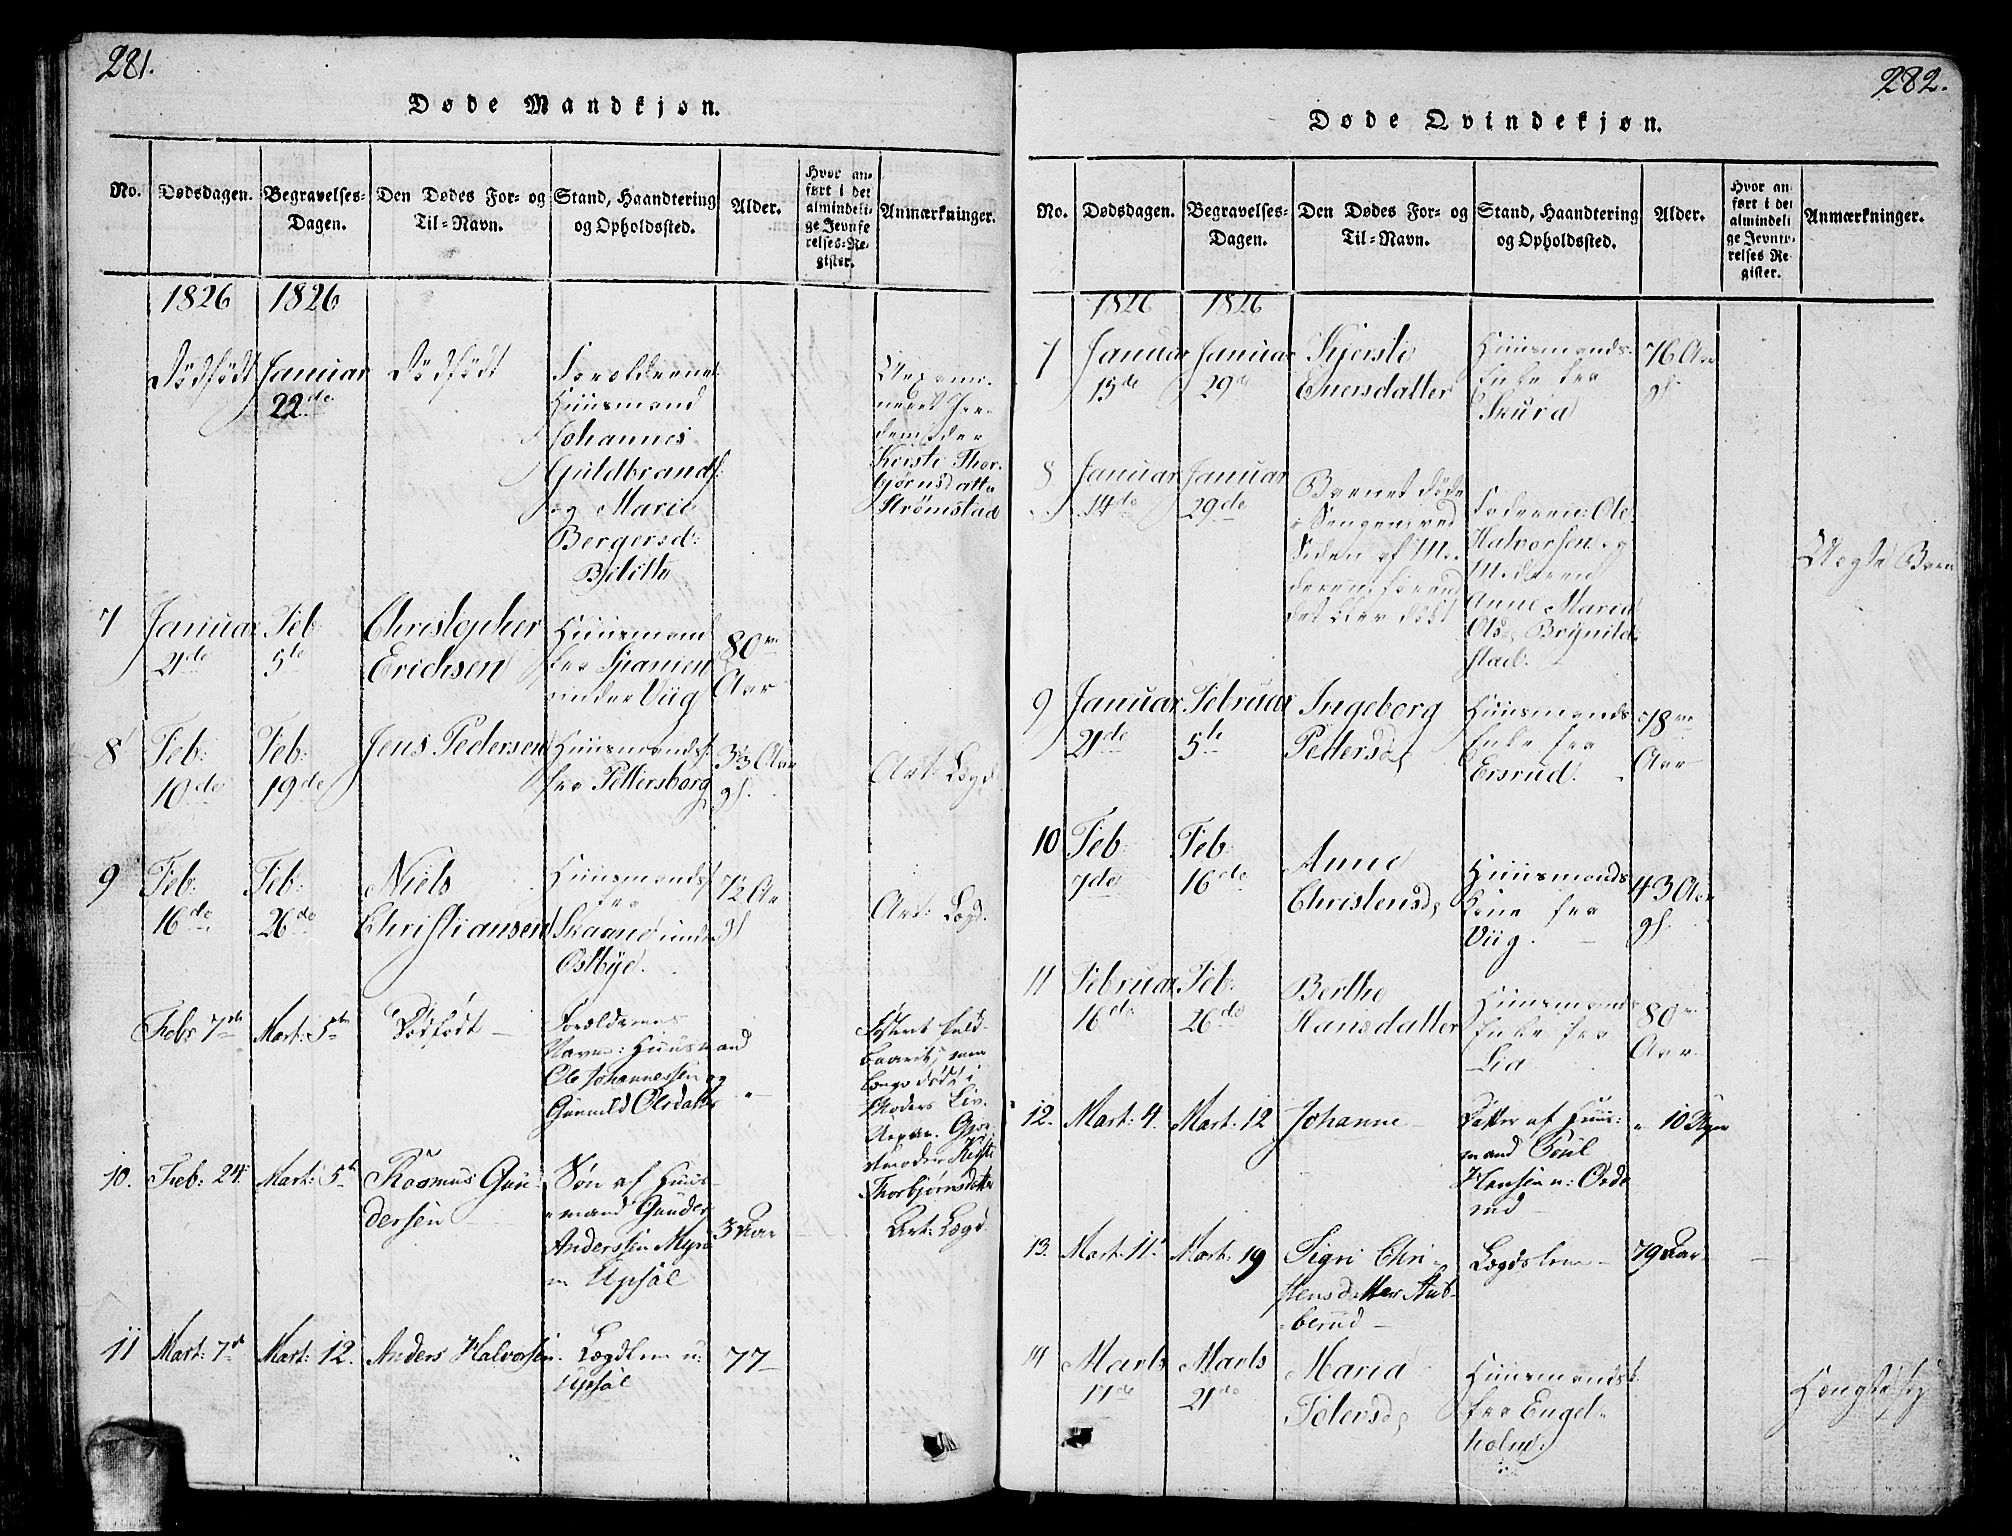 281.
Døde Mandkjøn.
No.
Dødsdagen.
Begravelses-
Dagen.
Den Dødes For- og
Til-Navn.
Stand, Haandtering
og Opholdssted.
Alder.
Hvor an-
ført i det
almindeli-
ge Jevnfø-
relses-Re-
gister.
Anmærkninger.
1826
1826
Dödfödt
Januar
22de
Dödfödt
Forældrene
Huusmand
Johannes
Guldbrands:
og Marie
Bergersd:
Kersti Thor-
bjørnsdatter
Strømstad
7
Januar
21de
Feb
5te
Christopher
Erichsen
Huusmand
fra Spanien
under Viig
80
Aar
8
Feb:
10de
Feb:
19de
Jens Pedersen
Huusmands
fra Pettersborg
Aar
gl.
Art: Lægd
9
Feb:
16de
Feb:
26de
Niels
Christiansen
Huusmands
fra
Skaane under
Østbye.
gl
Art: Lægd.
Feb: 7de
Mart: 5te
Dödfödt
Forældrenes
Navne: Huusmand
Ole Johannessen og
Gunnild Olsdatter
Moders Liv.
Thorbjørnsdatter
10.
Feb: 24
Mart: 5te
Rasmus Gun-
dersen
Søn af Huus-
mand Gunder
Anderssen
Upsal
3 Aar
Art: Lægd.
11
Mart: 7de
Mart: 12.
Anders Halvorsen
Lægdlem u:
Upsal
77
282.
Døde Qvindekjøn.
No.
Dødsdagen.
Begravelses-
Dagen.
Den Dødes For- og
Til-Navn.
Stand, Haandtering
og Opholdssted.
Alder.
Hvor an-
ført i det
almindeli-
ge Jevnfø-
relses Re-
gister.
Anmærkninger.
1826
1826
7
Januar
15de
Januar
29de
Kjersti
Enersdatter
Huusmands-
Enke fra
Skura
76 Aar
gl.
8
Januar
14de
Januar
29de
Barnet døde
i Sengen ved
Siden af Mo-
deren førend
det blev døbt
Faderen: Ole
Halvorsen og
Moderen
Anne Maria
Olsd. Brynild-
stad.
Uægte Barn
9
Januar
21de
Februar
5te
Ingeborg
Pedersd.
Huusmands
Enke fra
Ersrud.
78
Aar
10
Feb:
7de
Feb:
16de
Anne
Christensd.
Huusmands
Kone fra
Viig.
43 Aar
gl.
11
Februar
16de
Feb:
26de
Berthe
Hansdatter
Huusmands
Enke fra
Lia
80
Aar
12.
Mart: 4.
Mart: 12
Johanne
Datter af Huus-
mand
Hansen u:
10 Uger
13.
Mart: 11
Mart: 19
Sigri Chri-
stensdatter
Lægdslem
79 Aar
14
Marts
17de
Marts
21de
Maria
Huusmands
fra Engel-
holm.